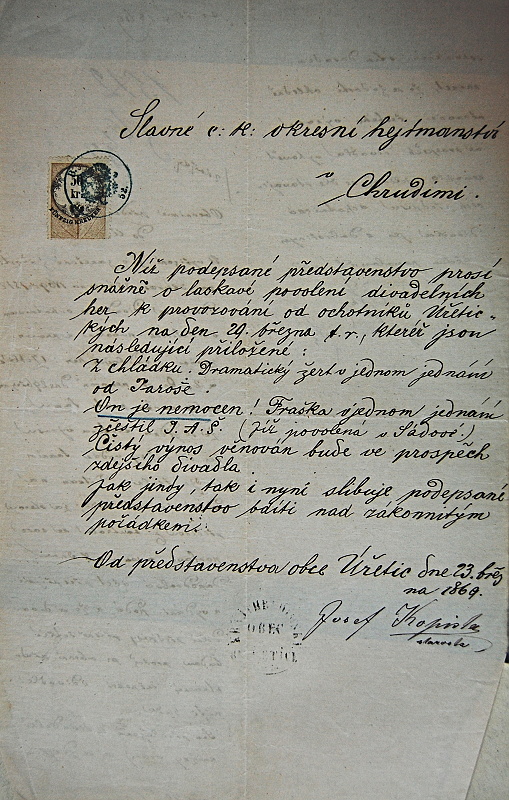 Slavné c: k: okresní hejtmanství
v
Chrudimi.
50
kr
Níž podepsané představenstvo prosí
snážně o laskavé povolení divadelních
her k provozování od ochotníků Úřetic-
kých na den 29. března t. r., kteréž jsou
následující přiložené:
Z chládku. Dramatický žert v jednom jednání
od Jaroše.
On je nemocen! Fraška v jednom jednání
zčeštil J. A. Š. (Již povolená v Sádové.)
Čistý výnos věnován bude ve prospěch
zdejšího divadla.
Jak jindy, tak i nyní slibuje podepsané
představenstvo bdíti nad zákonnitým
pořádkem.
Od představenstva obce Úřetic dne 23. břez
na 1869.
Josef Kopista
starosta
OBEC